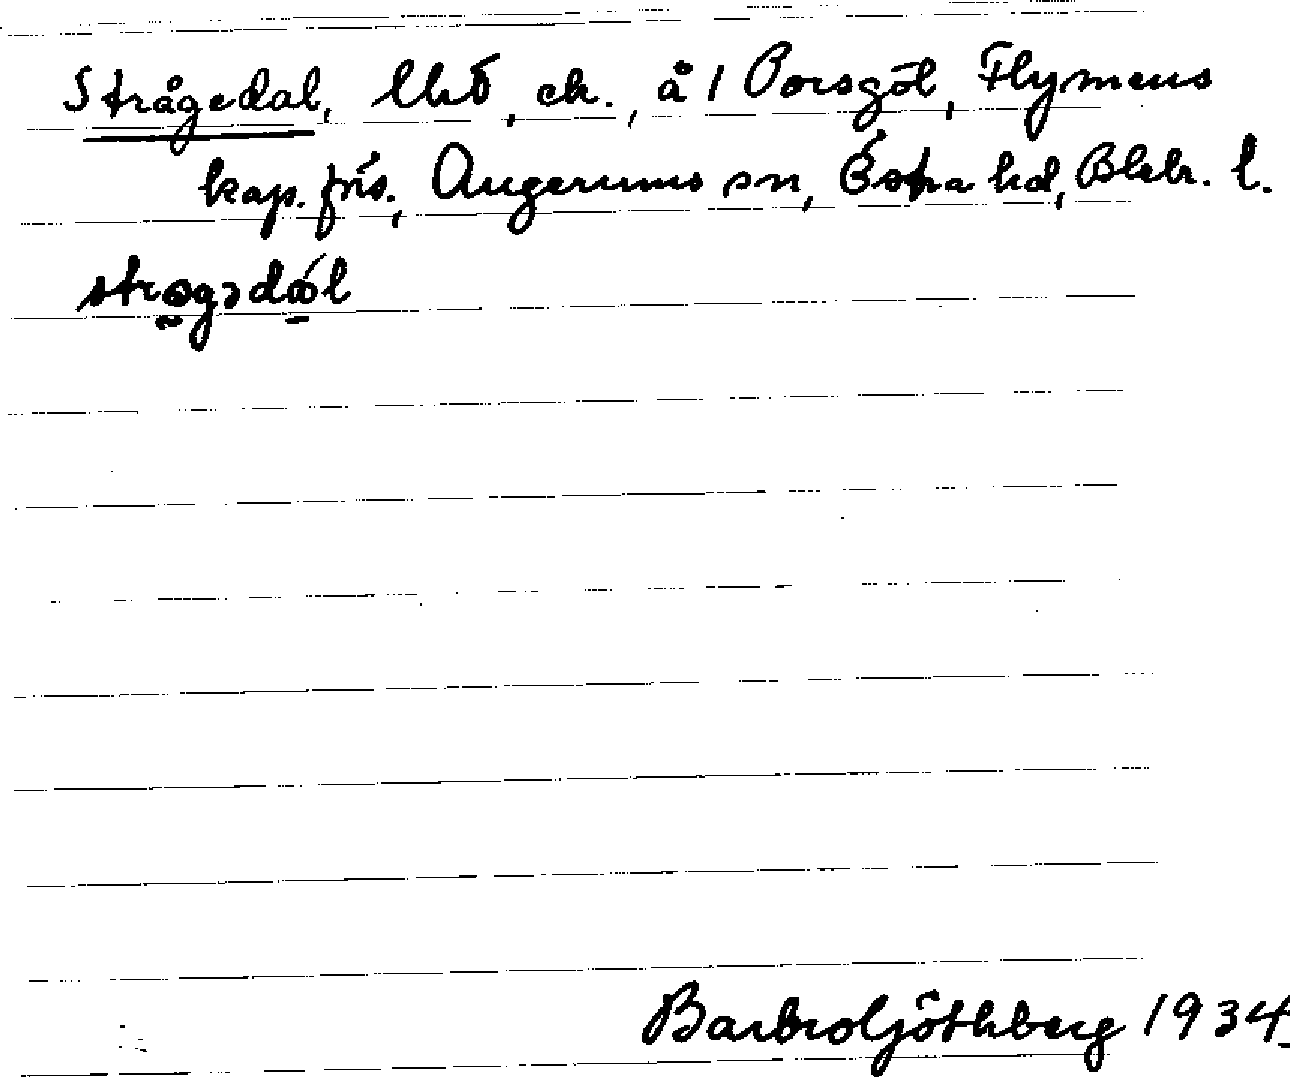 Strågedal, lht, ck., å 1 Porsgöl, Flymens
kap. förs., Augerums sn, Östra hd, Blek. l.
Barbro Göthberg 1934